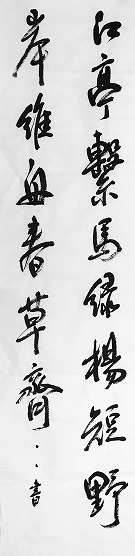 江亭繫馬綠楊短野
岸維舟春草齊
書